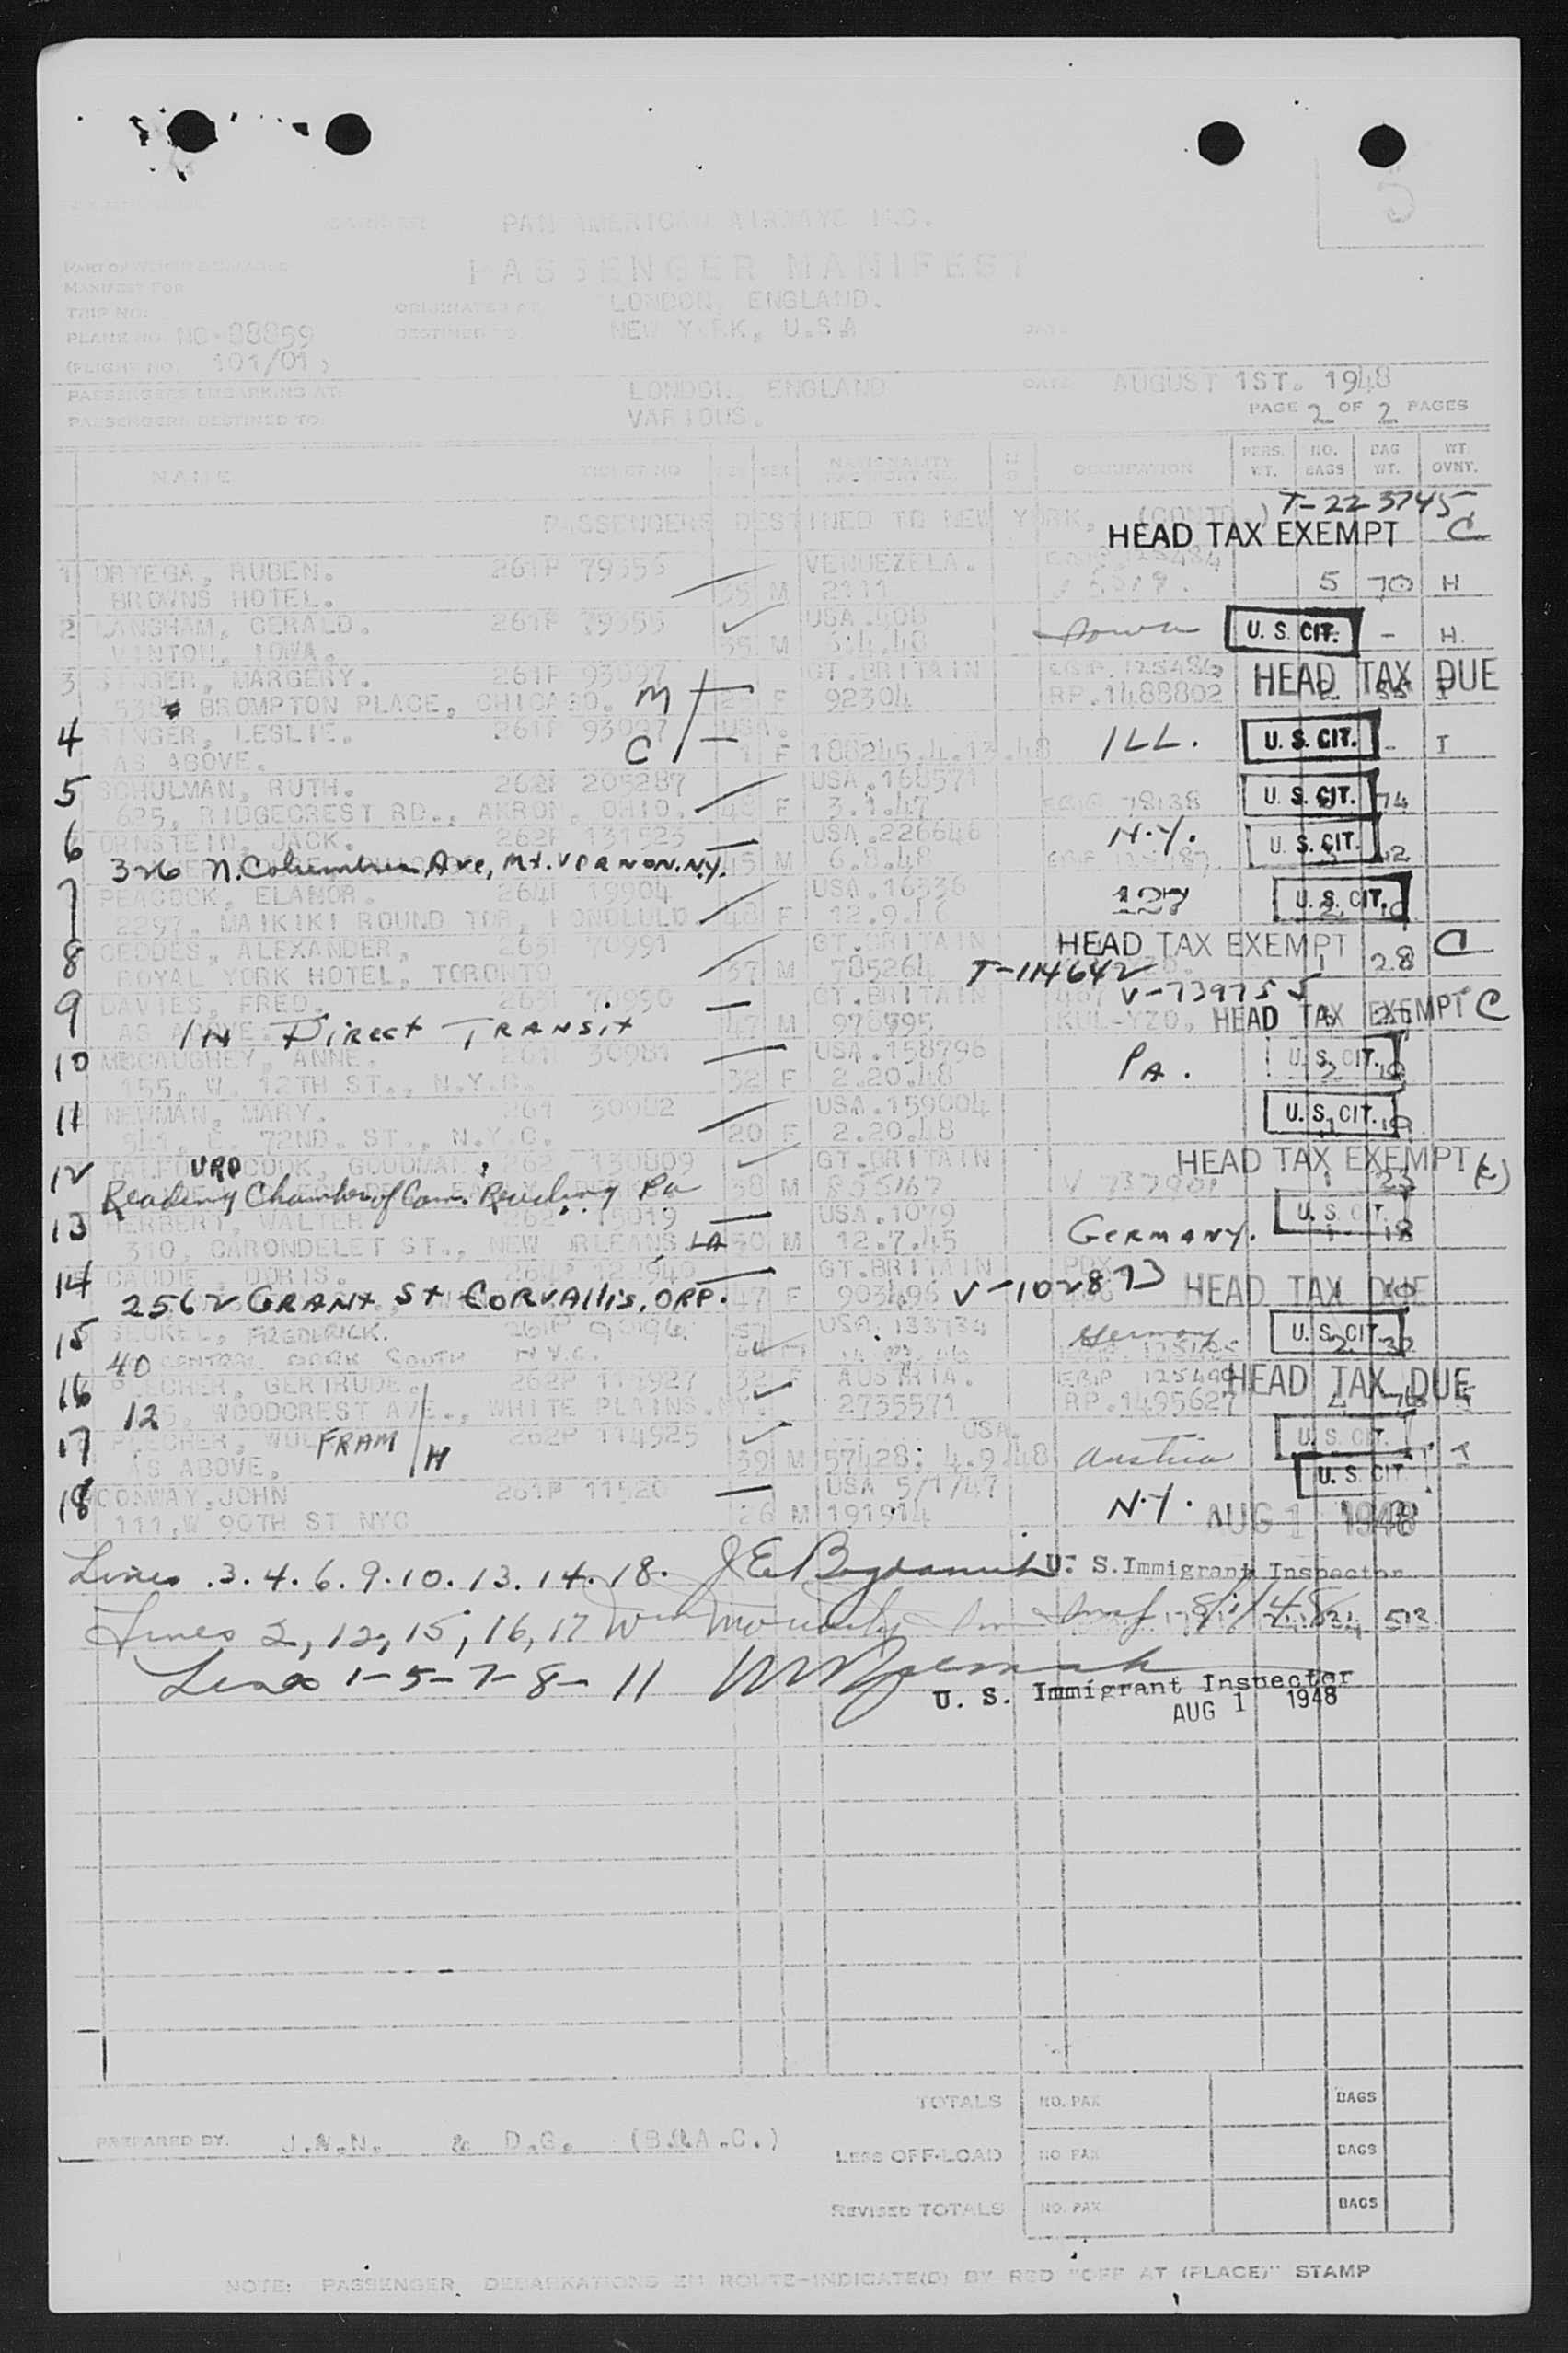 5
CARRIER PAN AMERICAN AIRWAYS INC.
PASSENGER MANIFEST
MANIFEST FOR
TRIP NO.
ORIGINATED AT LONDON, ENGLAND.
PLANE NO. NC-88859 DESTINED TO NEW YORK, U.S.A DATE
(FLIGHT NO. 101/01)
PASSENGERS EMBARKING AT: LONDON, ENGLAND DATE AUGUST 1ST. 1948
PASSENGERS DESTINED TO: VARIOUS. PAGE 2 OF 2 PAGES
NAME TICKET NO SEX NATIONALITY OCCUPATION PERS. WT. NO. BAGS BAG WT. WT. OVNT.
T-223745
PASSENGERS DESTINED TO NEW YORK, (CONTD.)
HEAD TAX EXEMPT C
1 ORTEGA, RUBEN. 261P 79555 VENUEZELA.
BROWNS HOTEL. 35 M 2111 5 70 H
2 LANGHAM, GERALD. 261P 79555 USA.
VINTON, IOWA. 35 M 3.4.48 Iowa U. S. CIT. - H.
3 SINGER, MARGERY. 261P 93097 GT.BRITAIN HEAD TAX DUE
BROMPTON PLACE, CHICAGO. M F 92304 RP.1488802
4 SINGER, LESLIE. 261P 93097 USA.
AS ABOVE. C 1 F 188245.4.13.48 ILL. U. S. CIT. - I
5 SCHULMAN, RUTH. 262P 205287 USA.168571
625, RIDGECREST RD., AKRON, OHIO. 48 F 3.1.47 78138 U. S. CIT. 74
6 ORNSTEIN, JACK. 262P 131523 USA.226646 N.Y.
326 N. Columbus Ave, Mt. VERNON. N.Y. 45 M 6.8.48 U. S. CIT. 42
7 PEACOCK, ELANOR. 264P 19904 USA.16336
2297, MAIKIKI ROUND TOP, HONOLULU. 48 F 12.9.46 127 U. S. CIT.
8 GEDDES, ALEXANDER, 70991 GT.BRITAIN HEAD TAX EXEMPT C
ROYAL YORK HOTEL, TORONTO 37 M 785264 T-114642 1 28
9 DAVIES, FRED. GT.BRITAIN V-739755
AS ABOVE. IN DIRECT TRANSIT 47 M 976995 HEAD TAX EXEMPT C
10 MCCAUGHEY, ANNE. 261P 30981 USA.158796
155, W. 12TH ST., N.Y.C. 32 F 2.20.48 PA. U. S. CIT.
11 NEWMAN, MARY. 30982 USA.159004
541, E. 72ND. ST., N.Y.C. 20 F 2.20.48 U. S. CIT. 19
12 URD COOK, GOODMAN, 130809 GT.BRITAIN HEAD TAX EXEMPT
Reading Chamber of Com. Reading Pa 38 M V 737901 23
13 HERBERT, WALTER 15019 USA.1079
310, CARONDELET ST., NEW ORLEANS, LA 30 M 12.7.45 GERMANY. U. S. CIT. 18
14 CADDIE, DORIS. GT.BRITAIN
2562 GRANT St CORVALLIS, ORE. 47 F 903496 V-102873 HEAD TAX DUE
15 SECKEL, FREDERICK. USA. 133734
40 CENTRAL PARK SOUTH N.Y.C. Germany U. S. CIT. 2 32
16 PLECHER, GERTRUDE. 262P 114927 32 F AUSTRIA. HEAD TAX DUE
12 WOODCREST AVE., WHITE PLAINS 2735571 RP.1495627
17 PLECHER, WOLFRAM 262P 114925 USA.
AS ABOVE. H 39 M 57428; 4.9.48 Austria U. S. CIT. I
18 CONWAY, JOHN 261P 11520 USA 5/1/47 U. S. CIT.
111, W 90TH ST NYC 26 M 191914 N.Y. AUG 1 1948
Lines .3.4.6.9.10.13.14.18. U. S. Immigrant Inspector
Lines 2, 12, 15, 16, 17 8/1/48 513
Lines 1-5-7-8-11
U. S. Immigrant Inspector
AUG 1 1948
TOTALS NO. PAX BAGS
PREPARED BY. J.N.N. & D.G. (B.A.C.)
LESS OFF-LOAD NO. PAX BAGS
REVISED TOTALS NO. PAX BAGS
NOTE: PASSENGER DEBARKATIONS EN ROUTE-INDICATE(D) BY RED "OFF AT (PLACE)" STAMP